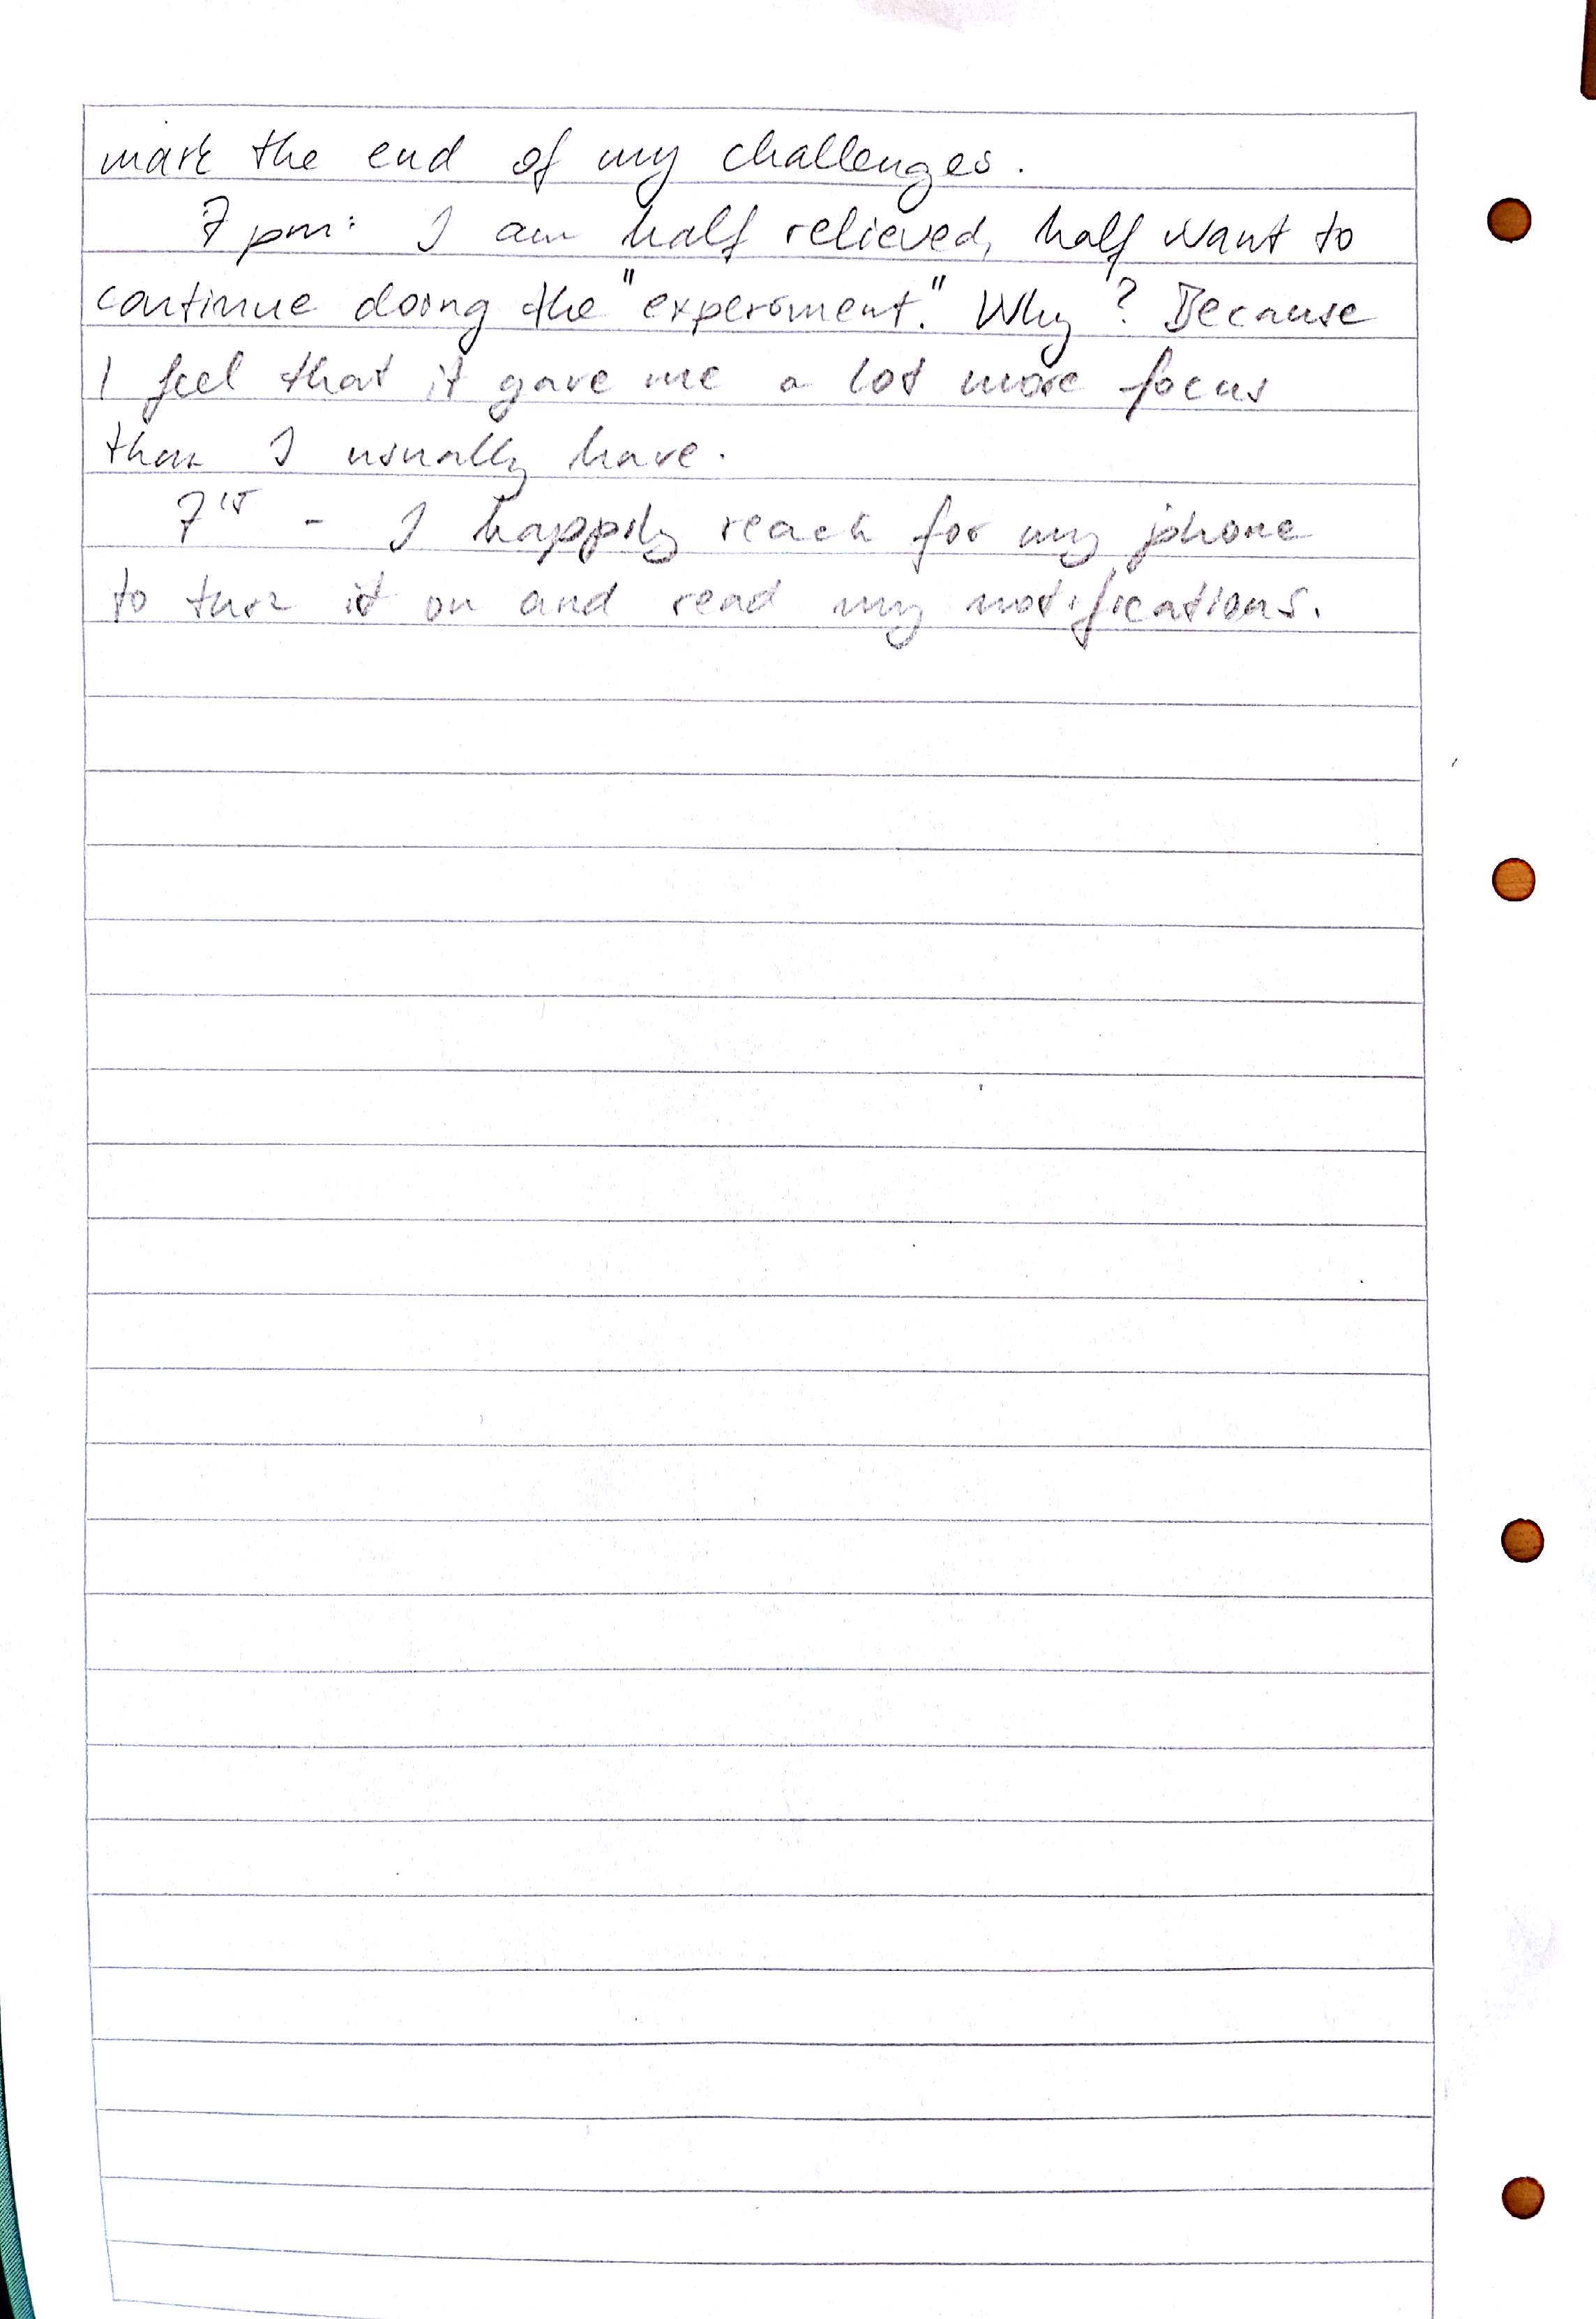 mark the end of my challenges.
7 pm: I am half relieved, half want to
continue doing the "experiment." Why? Because
I feel that it gave me a lot more focus
than I usually have.
7¹⁵ - I happily reach for my phone
to turn it on and read my notifications.